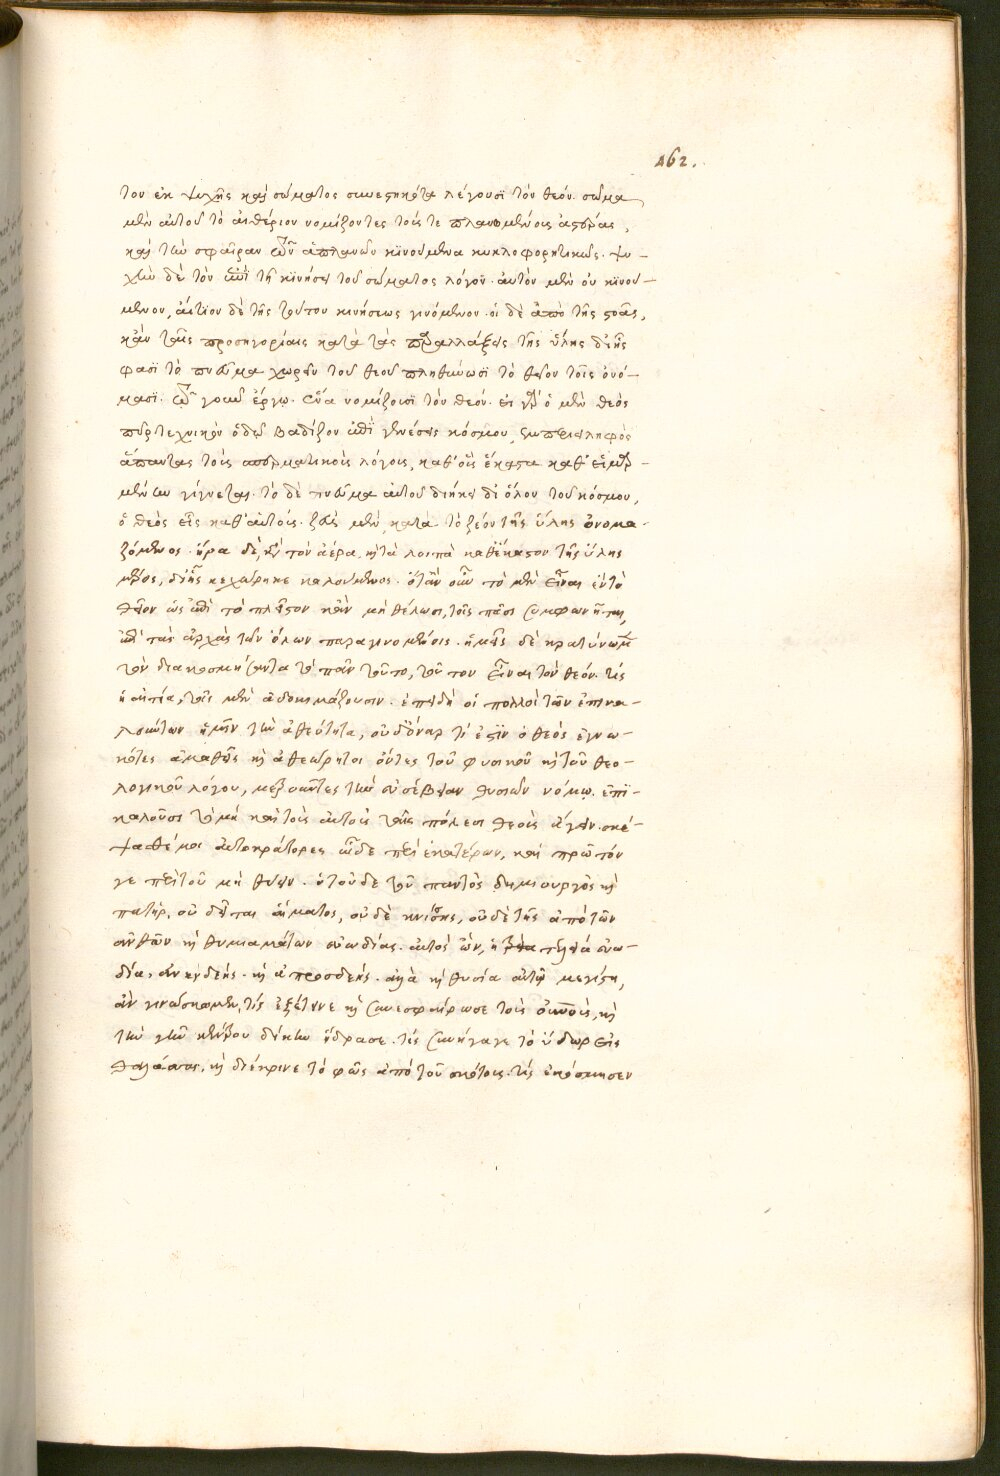 162.
του ἐκ ψυχῆς καὶ σώματος συνεστηκότα λέγουσι τὸν θεόν. σῶμα
μὲν αὐτοῦ τὸ αἰθέριον νομίζοντες τούς τε πλανωμένους ἀστέρας,
καὶ τὴν σφαῖραν τῶν ἀπλανῶν κινούμενα κυκλοφορητικῶς. ψυ-
χὴν δὲ τὸν ἐπὶ τῇ κινήσει τοῦ σώματος λόγον. αὐτὸν μὲν οὐ κινού-
μενον, αἴτιον δὲ τῆς τούτου κινήσεως γινόμενον. οἱ δὲ ἀπὸ τῆς στοᾶς,
κἂν ταῖς προσηγορίαις κατὰ τὰς παραλλάξεις τῆς ὕλης δι' ἧς
φασὶ τὸ πνεῦμα χωρεῖν τοῦ θεοῦ πληθύνωσι τὸ θεῖον τοῖς ὀνό-
μασι. τῷ γοῦν ἔργῳ. ἕνα νομίζουσι τὸν θεόν. εἰ γὰρ ὁ μὲν θεὸς
πῦρ τεχνικὸν ὁδῷ βαδίζον ἐπὶ γενέσεις κόσμου, ἐμπεριειληφὸς
ἅπαντας τοὺς σπερματικοὺς λόγους, καθ' οὓς ἕκαστα καθ' εἱμαρ-
μένην γίγνεται. τὸ δὲ πνεῦμα αὐτοῦ διήκει δι' ὅλου τοῦ κόσμου,
ὁ θεὸς εἷς καθ' αὐτούς. ζεὺς μὲν, κατὰ τὸ ζέον τῆς ὕλης ὀνομα-
ζόμενος. ἥρα δὲ, κατὰ τὸν ἀέρα, καὶ τὰ λοιπὰ καθ' ἕκαστον τῆς ὕλης
μέρος, δι' ἧς κεχώρηκε καλούμενος. ὅταν οὖν τὸ μὲν εἶναι ἓν τὸ
θεῖον ὡς ἐπὶ τὸ πλεῖστον κἂν μὴ θέλωσι, τοῖς πᾶσι συμφωνῆται,
ἐπὶ τὰς ἀρχὰς τῶν ὅλων παραγινομένοις. ἡμεῖς δὲ κρατύνωμεν
τὸν διακοσμήσαντα τὸ πᾶν τοῦτο, τοῦτον εἶναι τὸν θεόν. τίς
ἡ αἰτία, τοῖς μὲν
ἐπειδὴ οἱ πολλοὶ τῶν ἐπικα-
λούντων ἡμῖν τὴν ἀθεότητα, οὐδ' ὄναρ τί ἐστὶν ὁ θεὸς ἐγνω-
κότες ἀμαθεῖς καὶ ἀθεώρητοι ὄντες τοῦ φυσικοῦ καὶ τοῦ θεο-
λογικοῦ λόγου, μετροῦντες τὴν εὐσέβειαν θυσιῶν νόμῳ. ἐπι-
καλοῦσι τὸ μὴ καὶ τοὺς αὐτοὺς ταῖς πόλεσι θεοὺς ἄγειν. σκέ-
ψασθέ μοι αὐτοκράτορες ὧδε περὶ ἑκατέρων, καὶ πρῶτόν
γε περὶ τοῦ μὴ θύειν. ὁ τοῦδε τοῦ παντὸς δημιουργὸς καὶ
πατὴρ, οὐ δεῖται αἵματος, οὐδὲ κνίσσης, οὐδὲ τῆς ἀπὸ τῶν
ἀνθῶν καὶ θυμιαμάτων εὐωδίας. αὐτὸς ὢν, ἡ τελεία εὐω-
δία, ἀνενδεὴς. καὶ ἀπροσδεής. ἀλλὰ καὶ θυσία αὐτῷ μεγίστη,
ἂν γινώσκωμεν, τίς ἐξέτεινε καὶ συνεσφαίρωσε τοὺς οὐρανοὺς, καὶ
τὴν γῆν κέντρου δίκην ἥδρασε. τίς συνήγαγε τὸ ὕδωρ εἰς
θαλάσσας, καὶ διέκρινε τὸ φῶς ἀπὸ τοῦ σκότους. τίς ἐκόσμησεν